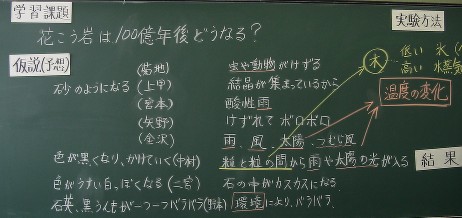 学習課題
花こう岩は100億年後どうなる?
仮説(予想)
砂のようになる
(菊地) 虫や動物がけずる
(上甲) 結晶が集まっているから
(宮本) 酸性雨
(矢野) けずれて ボロボロ
(金沢) 雨、風、太陽、つむじ風
色が黒くなり、かけていく(中村) 粒と粒の間から雨や太陽の光が入る
色がうすい白っぽくなる(二宮) 石の中がカスカスになる。
石英、黒うんもが一つ一つバラバラ 環境により、バラバラ。
実験方法
水
低い 氷
高い 水蒸気
温度の変化
結果